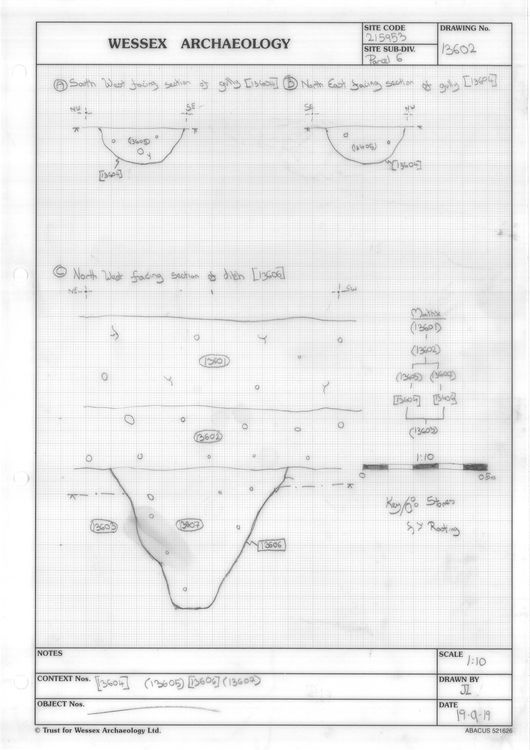 WESSEX ARCHAEOLOGY
SITE CODE
215953
SITE SUB-DIV.
Parcel 6
DRAWING No.
13602
(A) South West facing section of gully [13604]
(B) North East facing section of gully [13604]
NW
SE
SE
NW
(13605)
[13604]
(13605)
[13604]
(C) North West facing section of ditch [13606]
NE
SW
Matrix
(13601)
(13602)
(13605)
[13604]
(13603)
(13601)
(13602)
1:10
0
0.5m
Key
Stones
Rooting
(13603)
(13607)
[13606]
NOTES
SCALE
1:10
CONTEXT Nos.
[13604] (13605) [13606] (13607)
DRAWN BY
JL
OBJECT Nos.
DATE
19-9-19
© Trust for Wessex Archaeology Ltd.
ABACUS 521626